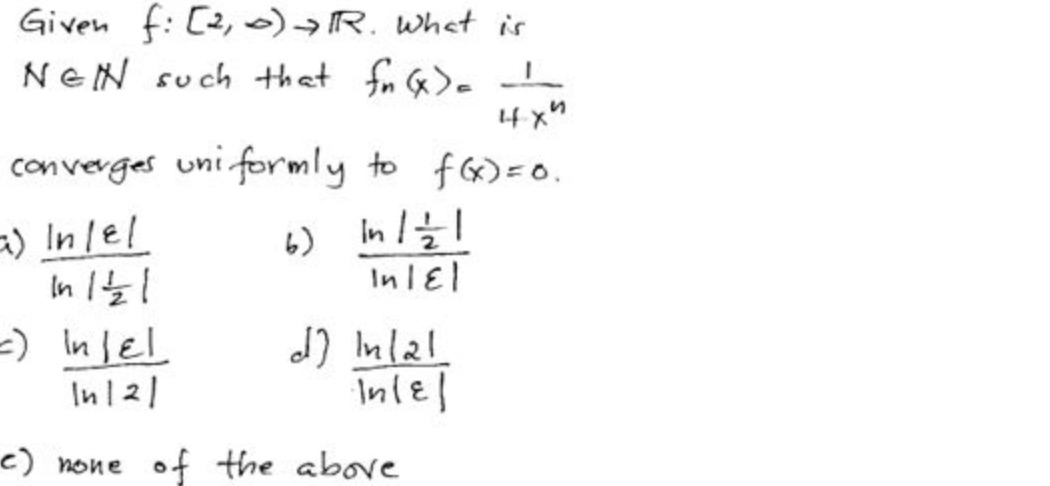 Given f: [2, ∞) → ℝ. What is
N ∈ ℕ such that fn(x) = 1/(4x^n)
converges uniformly to f(x) = 0.
a) ln|ε| / ln|1/2| b) ln|1/2| / ln|ε|
c) ln|ε| / ln|2| d) ln|2| / ln|ε|
e) none of the above